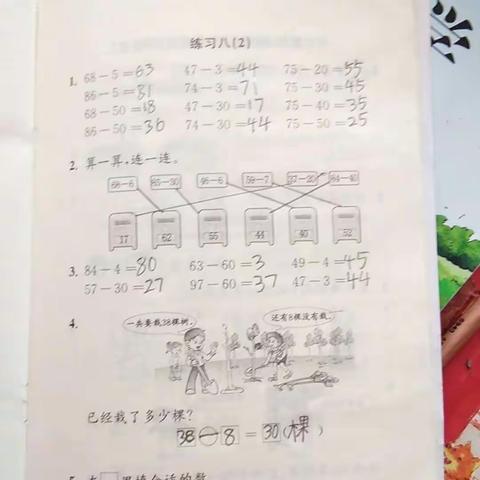 练习八(2)
1. 68-5=63 47-3=44 75-20=55
86-5=81 74-3=71 75-30=45
68-50=18 47-30=17 75-40=35
86-50=36 74-30=44 75-50=25
2. 算一算,连一连。
68-6 85-30 46-6 59-7 37-20 84-40
17 62 55 44 40 52
3. 84-4=80 63-60=3 49-4=45
57-30=27 97-60=37 47-3=44
4.
一共要栽38棵树。 还有8棵没有栽。
已经栽了多少棵?
38-8=30(棵)